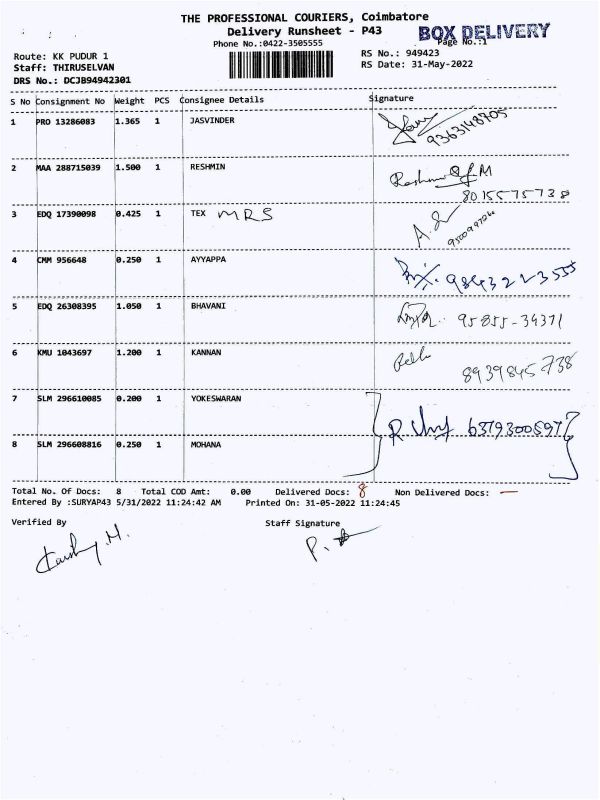 THE PROFESSIONAL COURIERS, Coimbatore
Delivery Runsheet - P43
BOX DELIVERY
Phone No.:0422-3505555
Page No.:1
Route: KK PUDUR 1
RS No.: 949423
Staff: THIRUSELVAN
RS Date: 31-May-2022
DRS No.: DCJB94942301
S No Consignment No Weight PCS Consignee Details Signature
1 PRO 13286083 1.365 1 JASVINDER
9363148705
2 MAA 288715039 1.500 1 RESHMIN
8015575738
3 EDQ 17390098 0.425 1 TEX MRS
4 CMM 956648 0.250 1 AYYAPPA
9843223555
5 EDQ 26308395 1.050 1 BHAVANI
95855-34371
6 KMU 1043697 1.200 1 KANNAN
8939845738
7 SLM 296610085 0.200 1 YOKESWARAN
6379300597
8 SLM 296608816 0.250 1 MOHANA
Total No. Of Docs: 8 Total COD Amt: 0.00 Delivered Docs: 8 Non Delivered Docs: —
Entered By :SURYAP43 5/31/2022 11:24:42 AM Printed On: 31-05-2022 11:24:45
Verified By Staff Signature